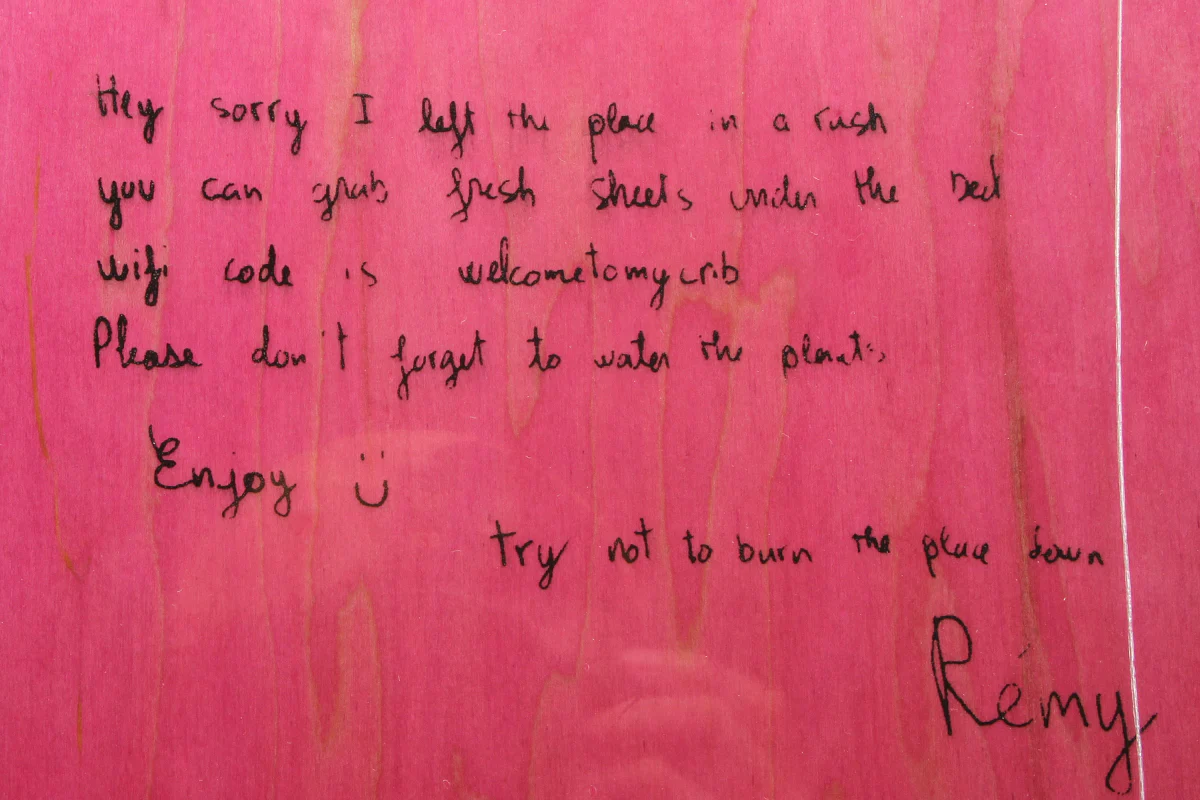 Hey sorry I left the place in a rush
you can grab fresh sheets under the bed
wifi code is welcometomycrib
Please don't forget to water the plants
Enjoy :)
try not to burn the place down
Rémy